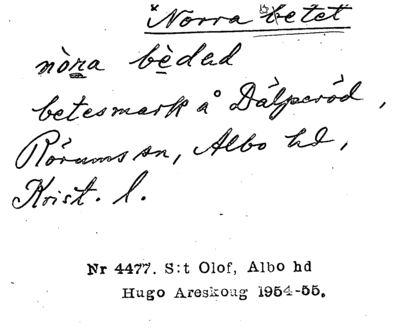 *Norra betet
nòra bèdad
betesmark å Dälperöd,
Rörums sn, Albo hd,
Krist. l.
Nr 4477. S:t Olof, Albo hd
Hugo Areskoug 1954-55.